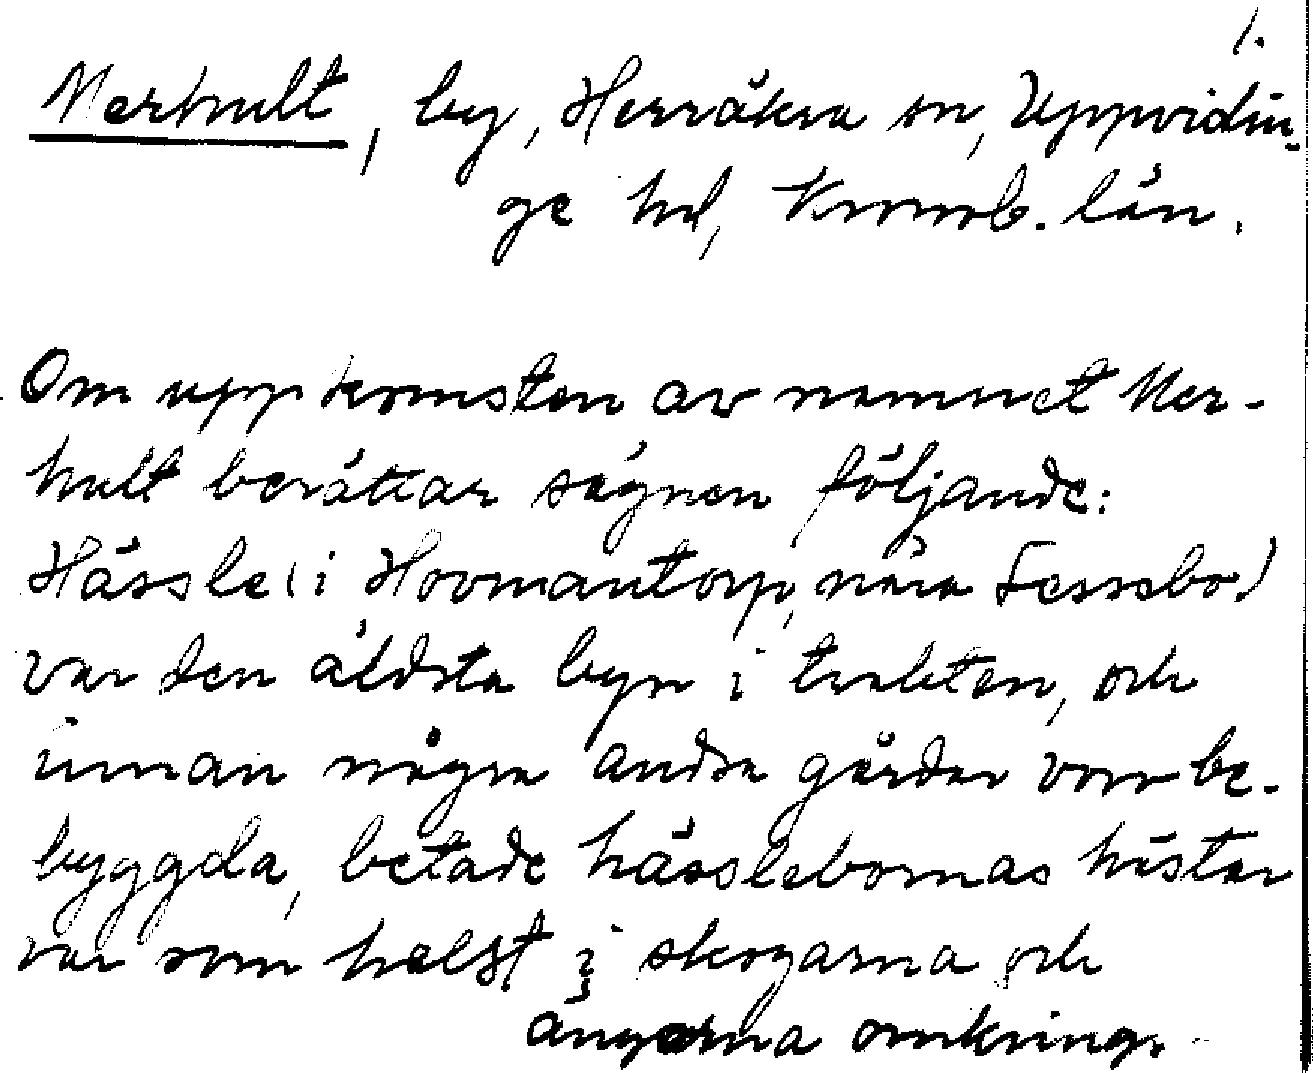 1.
Merhult, by, Herråkra sn, Uppvidin-
ge hd, Kronob. län.
Om uppkomsten av namnet Mer-
hult berättar sägnen följande:
Hässle (i Hovmantorp, nära Lessebo)
var den äldsta byn i trakten, och
innan några andra gårdar voro be-
byggda, betade hässlebornas hästar
var som helst i skogarna och
ängarna omkring.